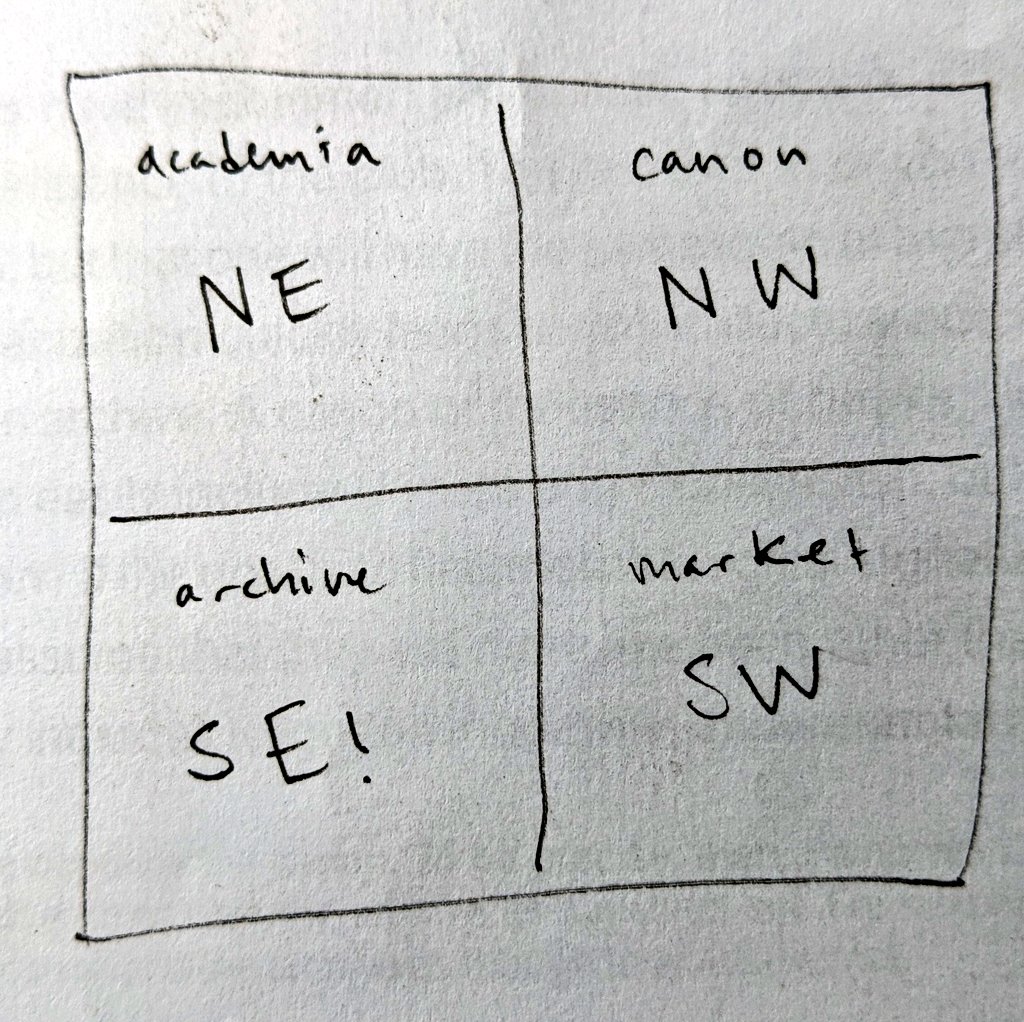 academia
NE
canon
NW
archive
SE!
market
SW